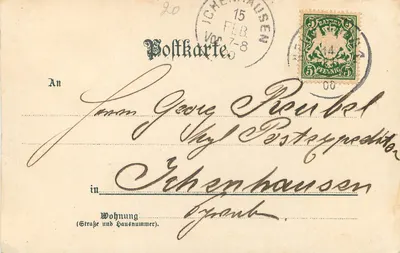 20
ICHENHAUSEN
15
FEB
Vor. 7-8
Postkarte.
BAYERN
5 5
PFENNIG
5 5
14
00
An
Herrn Georg Reubel
Kgl Postexpeditor
in Ichenhausen
Wohnung
(Straße und Hausnummer).